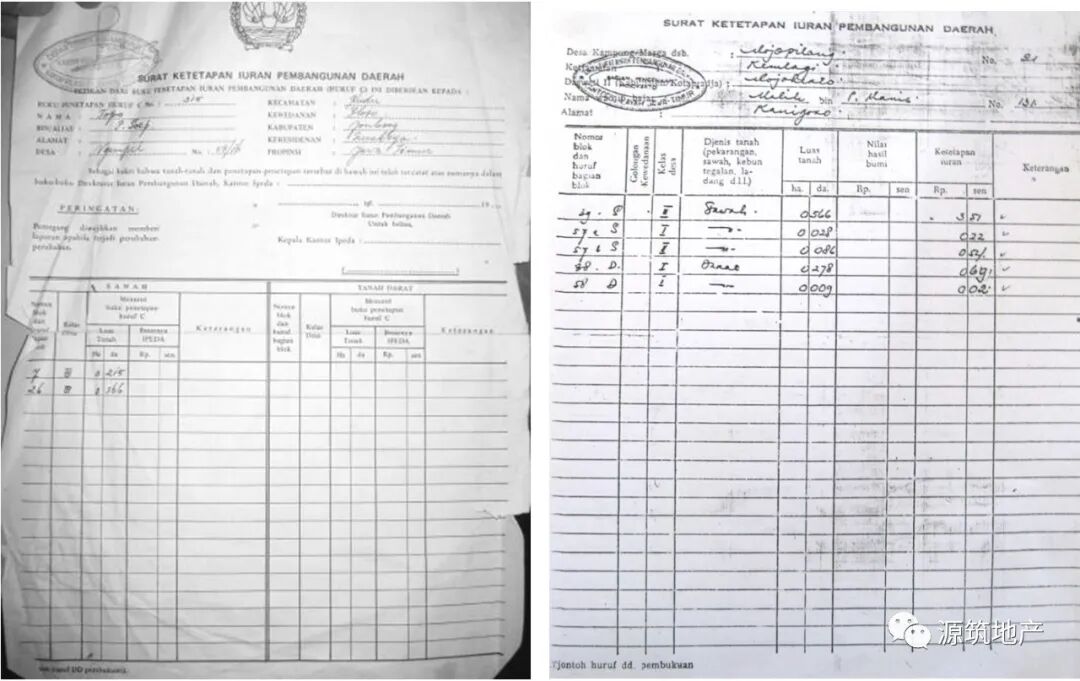 SURAT KETETAPAN IURAN PEMBANGUNAN DAERAH
PETIKAN DARI BUKU PENETAPAN IURAN PEMBANGUNAN DAERAH (HURUF C) INI DIBERIKAN KEPADA :
BUKU PENETAPAN HURUF C No. : 215
KECAMATAN :
NAMA : Topo
KEWEDANAN : Ploso
BIN/ALIAS :
KABUPATEN : Jombang
ALAMAT :
KERESIDENAN : Surabaya
DESA : No. :
PROPINSI : Jawa Timur
Sebagai bukti bahwa tanah-tanah dan penetapan-penetapan tersebut di bawah ini telah tercatat atas namanya dalam
buku-buku Direktorat Iuran Pembangunan Daerah, Kantor Ipeda :
PERINGATAN:
19
Direktur Iuran Pembangunan Daerah
Untuk beliau,
Pemegang diwajibkan memberi
laporan apabila terjadi perubahan-
perubahan.
Kepala Kantor Ipeda :
SAWAH
TANAH DARAT
Nomor blok dan huruf bagian blok
Kelas Desa
Menurut buku penetapan huruf C
Keterangan
Nomor blok dan huruf bagian blok
Kelas Desa
Menurut buku penetapan huruf C
Keterangan
Luas Tanah
Besarnya IPEDA
Luas Tanah
Besarnya IPEDA
Ha da Rp. sen
Ha da Rp. sen
7 III 0 215
26 III 0 366
SURAT KETETAPAN IURAN PEMBANGUNAN DAERAH.
Desa Kampong-Marga dsb. : Mojopilang No. 21
: Kemlagi
: Mojokerto
Nama : Malik bin P. Manis No. 131
Alamat : Kanigoro
Nomor blok dan huruf bagian blok
Golongan Kewedanaan
Kelas desa
Djenis tanah (pekarangan, sawah, kebun tegalan, ladang d.l.l.)
Luas tanah
Nilai hasil bumi
Ketetapan iuran
Keterangan
ha. da. Rp. sen Rp. sen
29. S II Sawah. 0 566 3 51
57 a S I 0 028 0 22
57 b S II 0 086 0 54
38. D. I Darat 0 278 0 69
58 D I 0 009 0 02
Tjontoh huruf dd. pembukuan
源筑地产